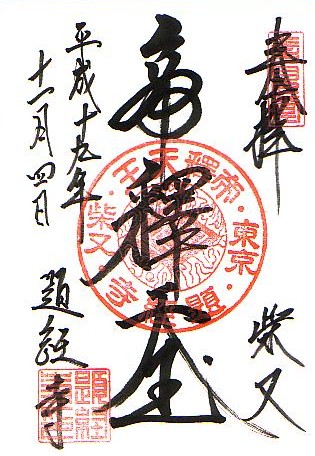 奉拝
柴又
帝釋天王
平成十九年
十一月四日
題経寺
帝釋天王・東京・題経寺・柴又